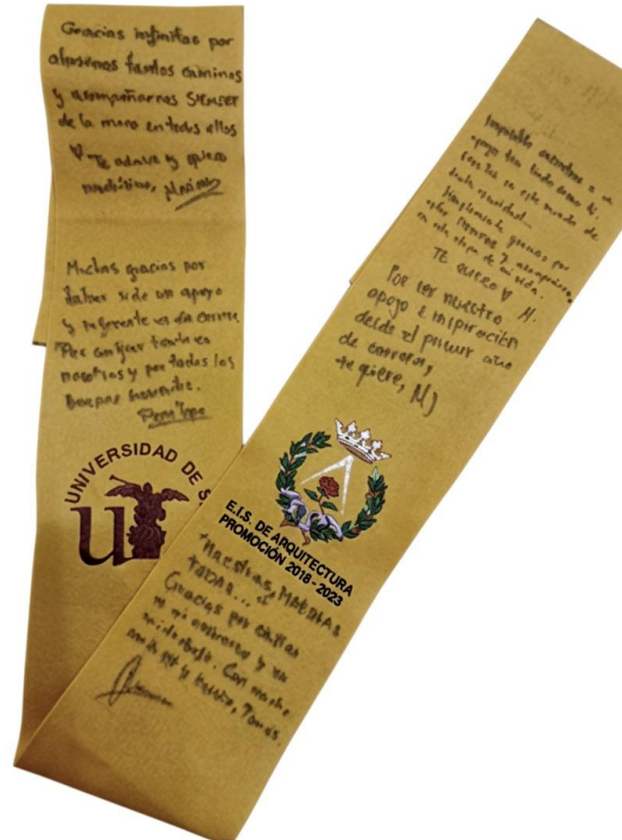 Gracias infinitas por
abrirnos tantos caminos
y acompañarnos SIEMPRE
de la mano en todos ellos
Te adora y quiere
muchísimo,
Muchas gracias por
haber sido un apoyo
y referente en la carrera.
Por confiar tanto en
nosotros y por todos los
UNIVERSIDAD DE S
Imposible encontrar a un
apoyo tan lindo como tú.
en este mundo de
tanta
Simplemente gracias por
estar siempre y acompañarme
en esta etapa de mi vida.
TE QUIERO M.
Por ser nuestro
apoyo e inspiración
desde el primer año
de carrera,
te quiere, MJ
E.I.S. DE ARQUITECTURA
PROMOCIÓN 2018 - 2023
Maestras, MAESTRAS
TODAS...
Gracias por confiar
en mi esfuerzo y en
mi trabajo. Con mucho
y cariño, Tomás.